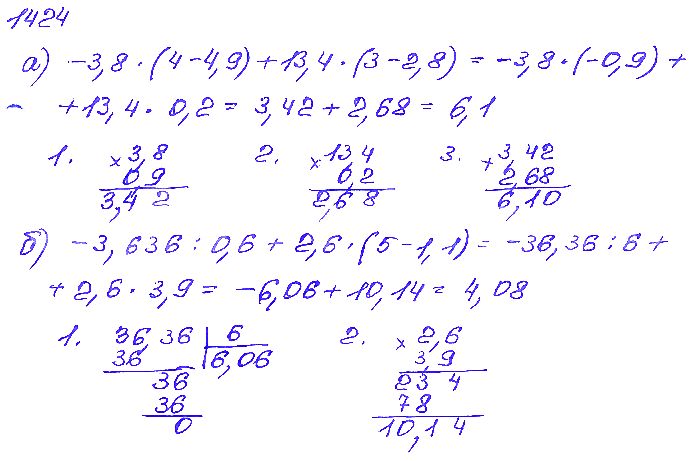 1424
а) -3,8 · (4-4,9) + 13,4 · (3-2,8) = -3,8 · (-0,9) +
- +13,4 · 0,2 = 3,42 + 2,68 = 6,1
1. × 3,8 2. × 13,4 3. + 3,42
0 9 0,2 2,68
3,4 2 2,6 8 6,10
б) -3,636 : 0,6 + 2,6 · (5-1,1) = -36,36 : 6 +
+ 2,6 · 3,9 = -6,06 + 10,14 = 4,08
1. 36,36 | 6 2. × 2,6
36 6,06 3,9
36 23 4
36 78
0 10,1 4